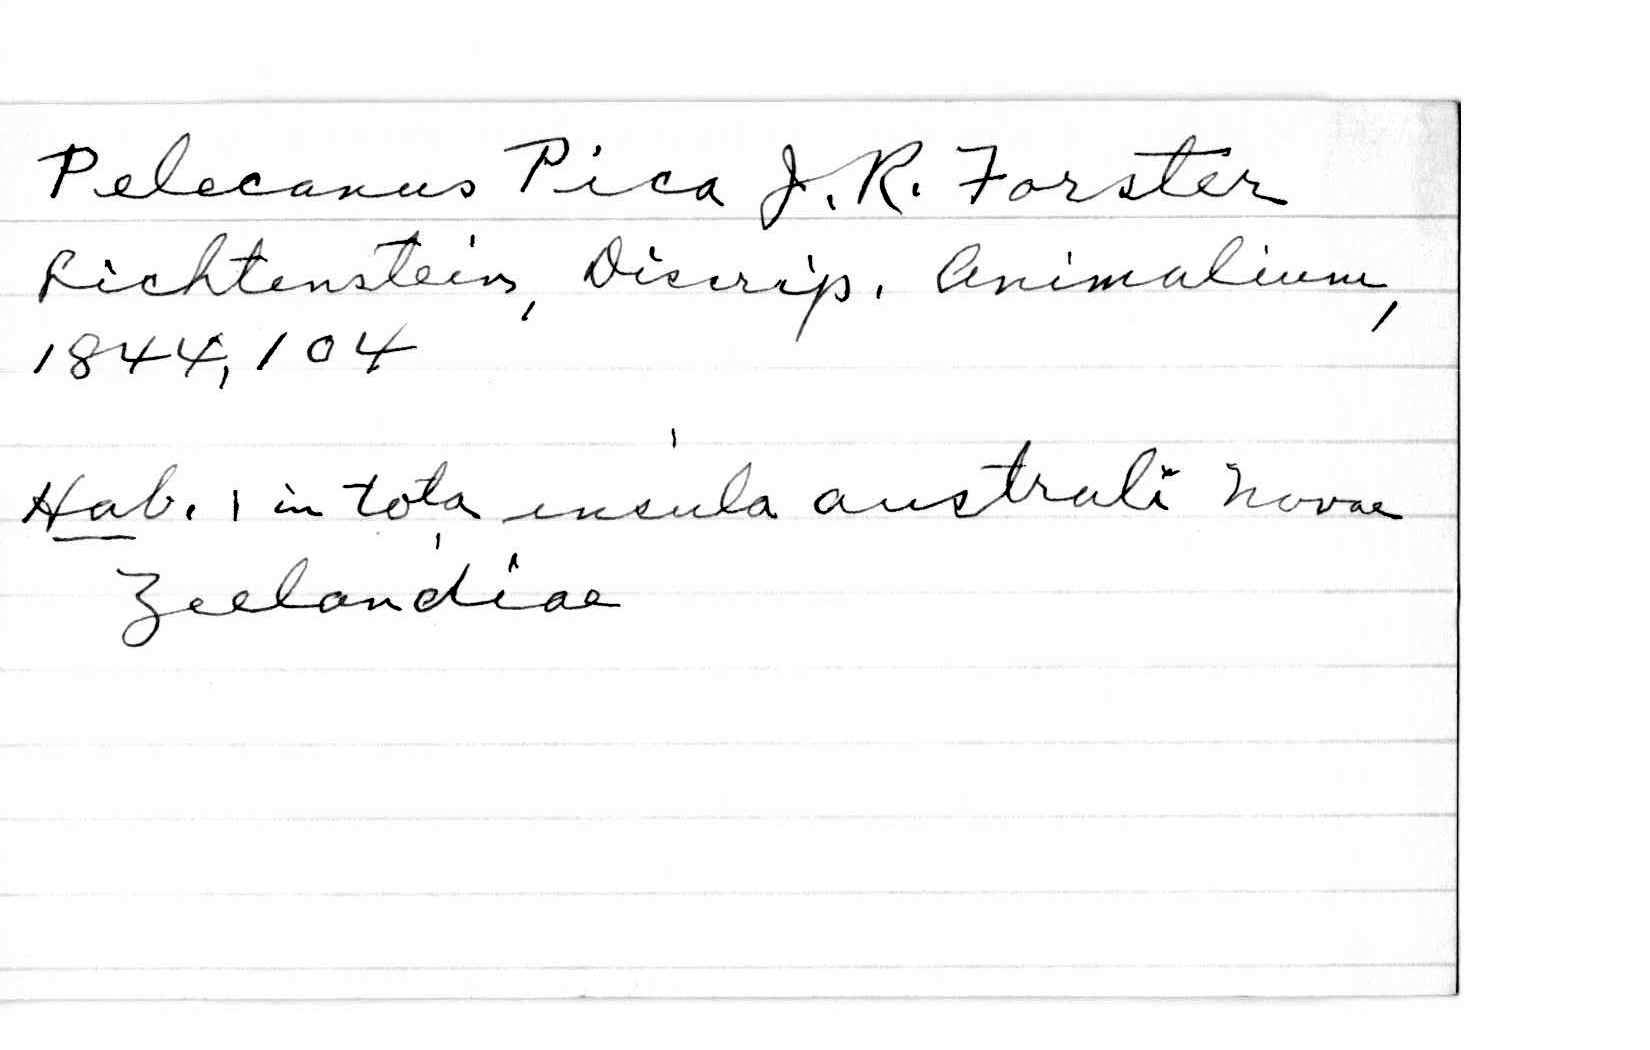 Pelecanus Pica J. R. Forster
Lichtenstein, Discrip. Animalium,
1844, 104
Hab. | in tota insula australi Novae
Zeelandiae